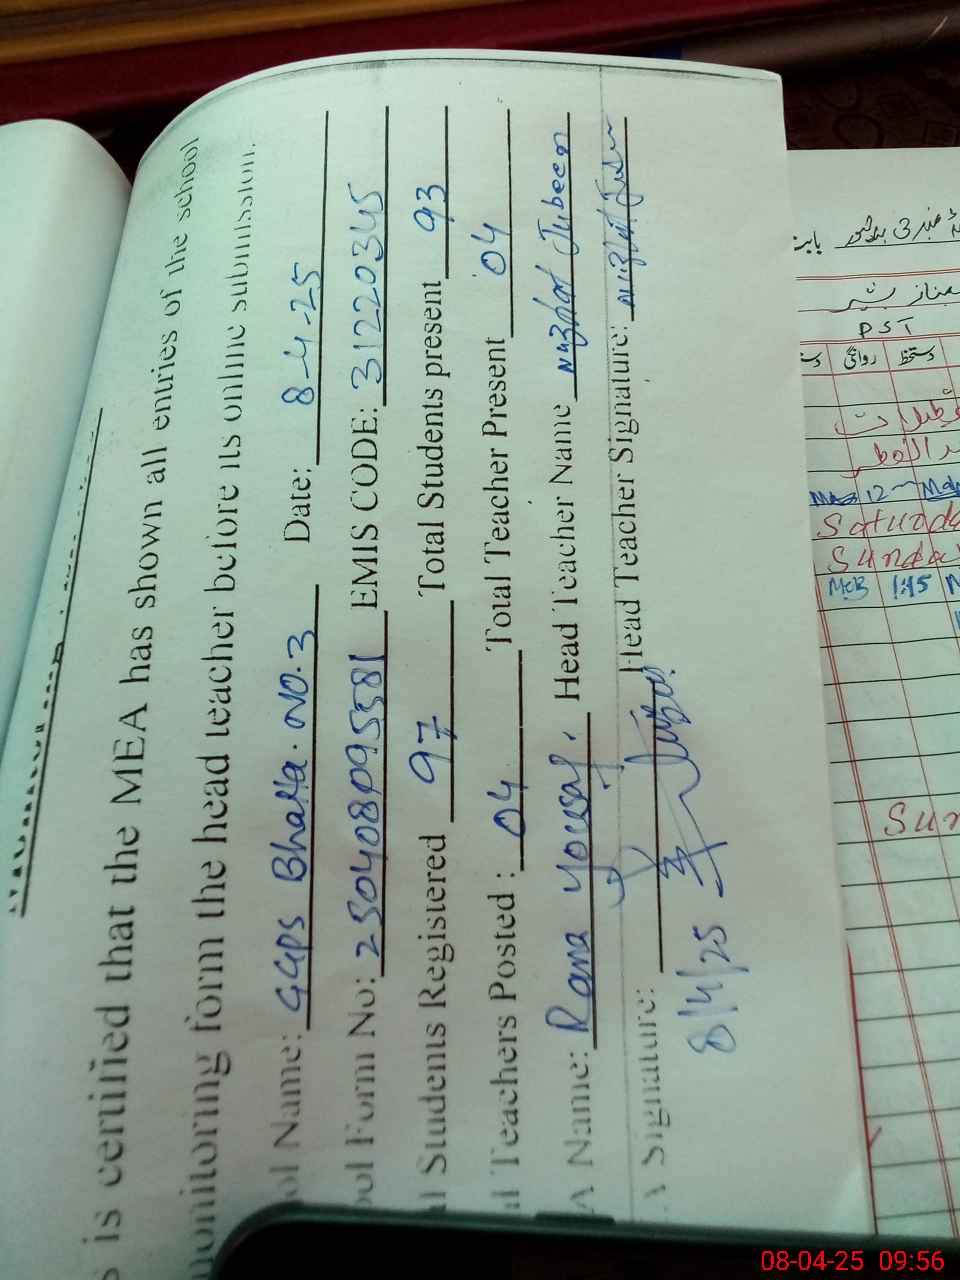 is certified that the MEA has shown all entries of the school
monitoring form the head teacher before its online submission.
ol Name: GGPS Bhatta. NO. 3 Date: 8-4-25
ol Form No: 250408095581 EMIS CODE: 31220345
l Students Registered 97 Total Students present 93
l Teachers Posted : 04 Total Teacher Present 04
A Name: Rana Yousaf. Head Teacher Name Nuzhat Jubeen
Signature: Head Teacher Signature:
8/4/25
PST
روانگی دستخط
12
Saturda
Sunda
1:15
Sun
08-04-25 09:56